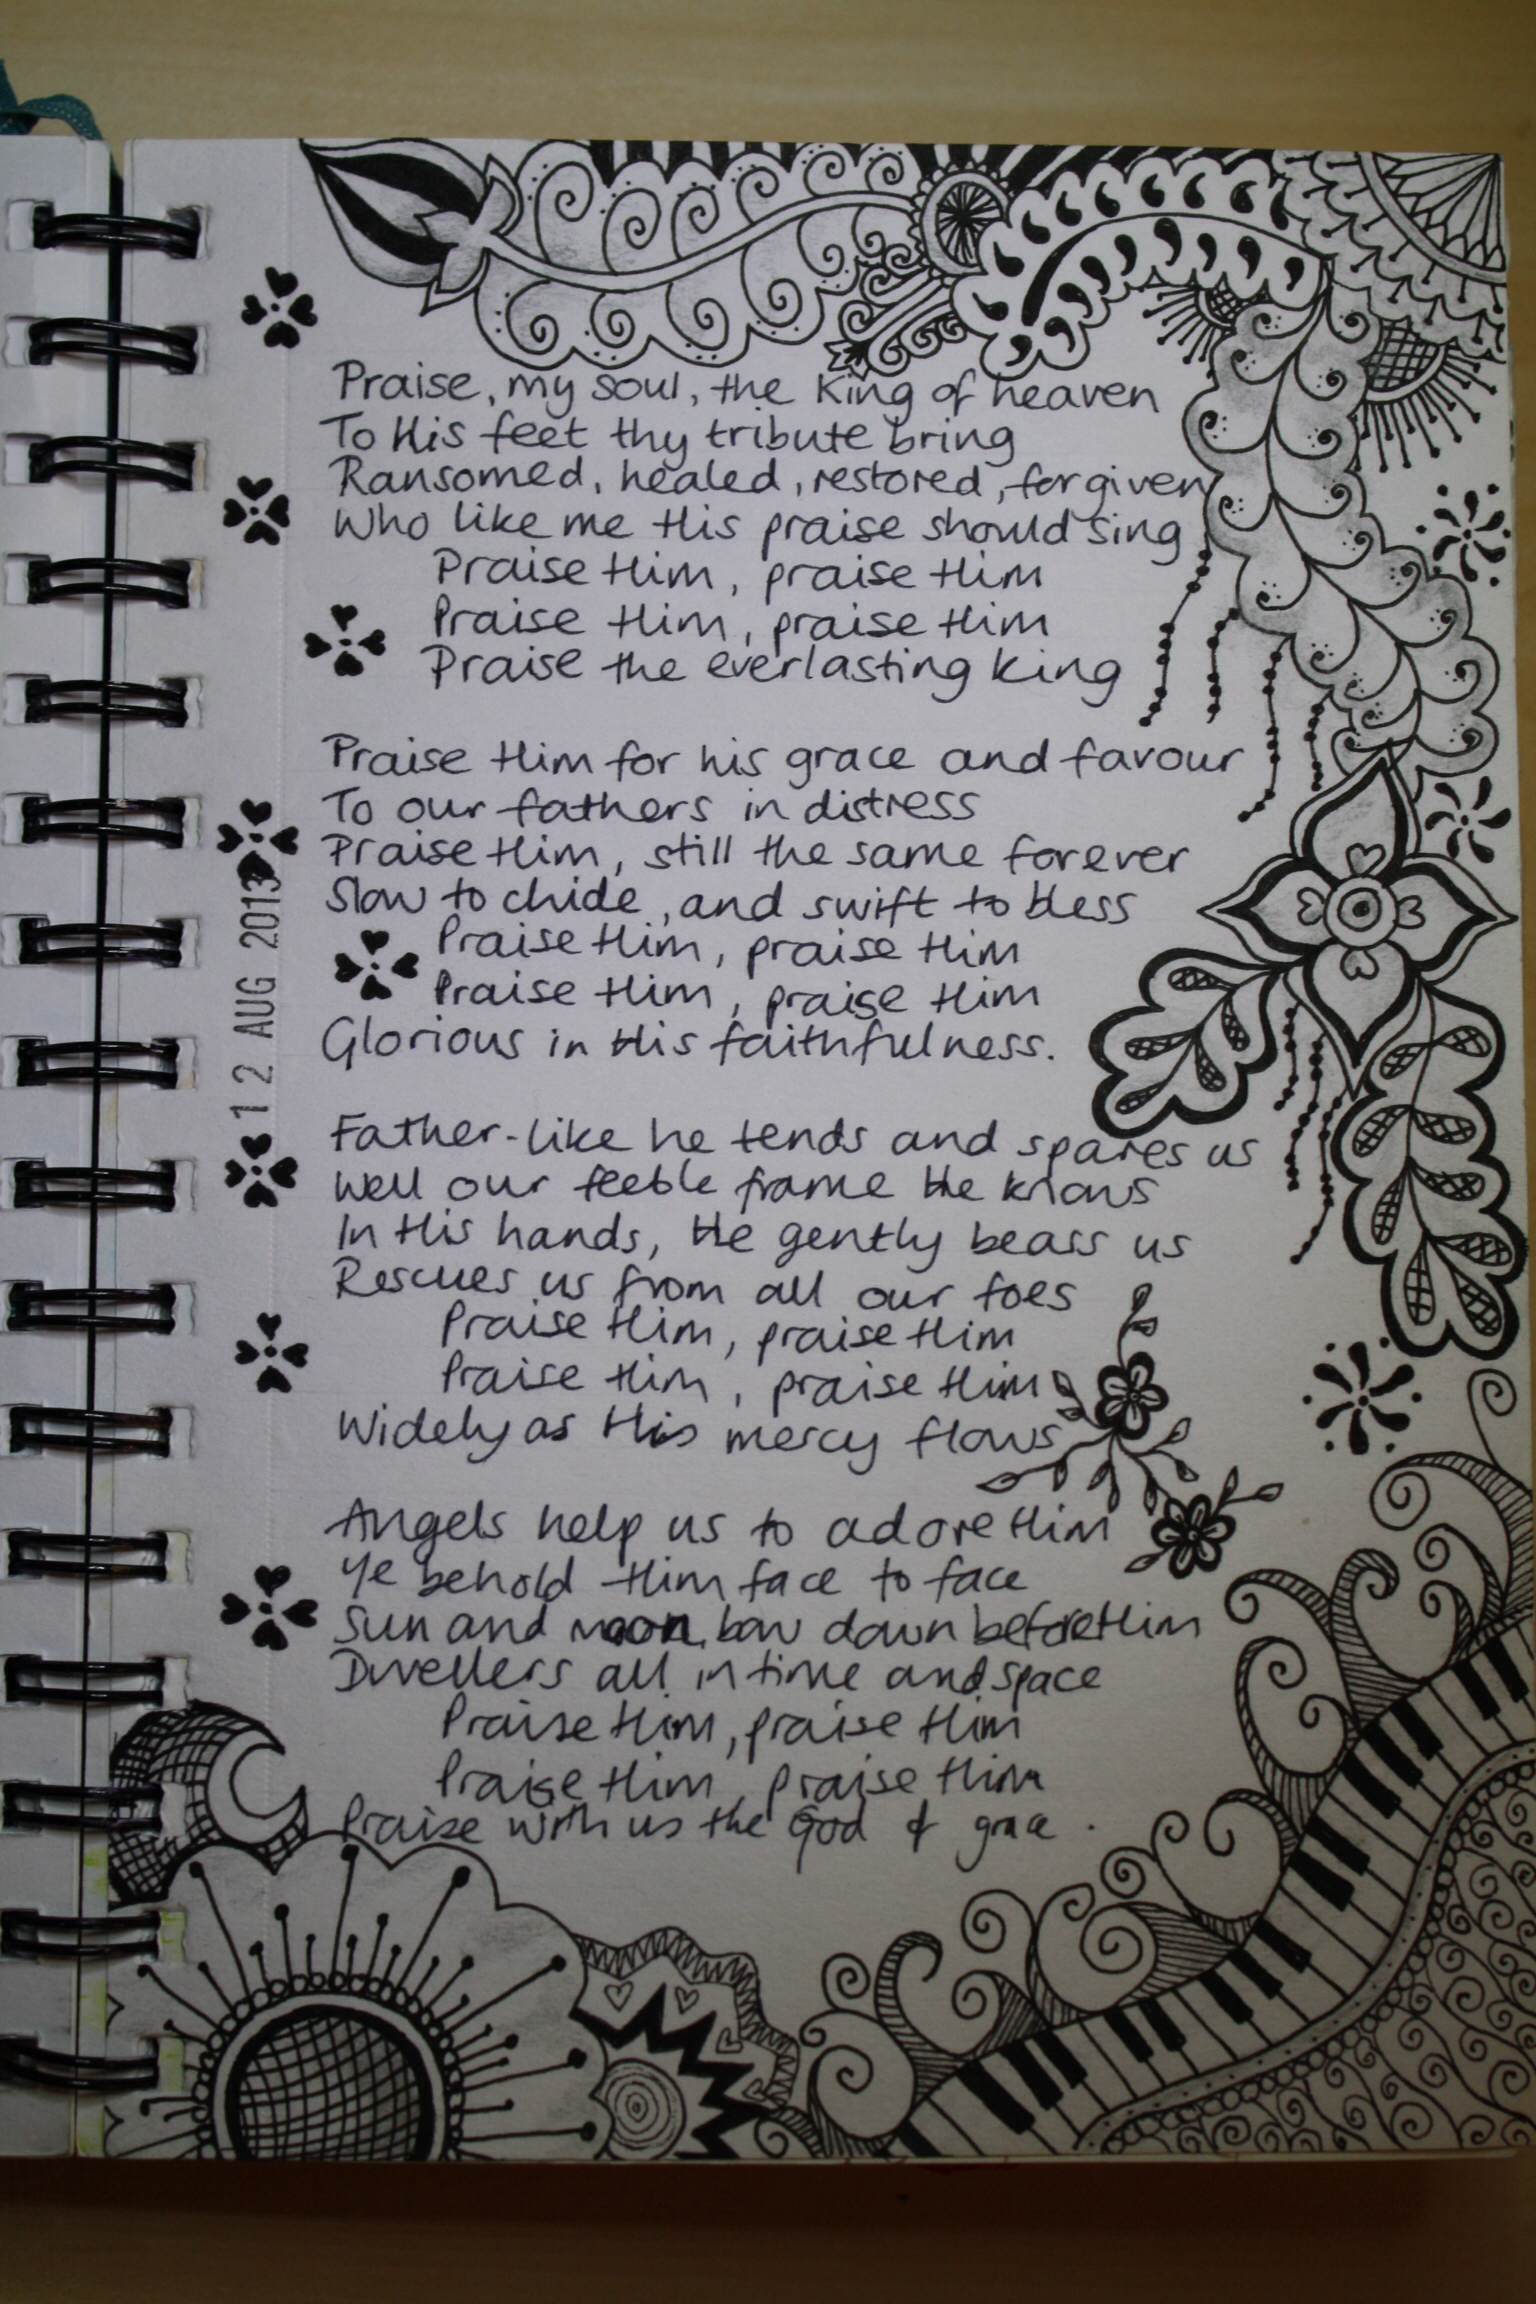 Praise, my soul, the King of heaven
To His feet thy tribute bring
Ransomed, healed, restored, forgiven
Who like me His praise should sing
Praise Him, praise Him
Praise Him, praise Him
Praise the everlasting king
Praise Him for his grace and favour
To our fathers in distress
Praise Him, still the same forever
Slow to chide, and swift to bless
Praise Him, praise Him
Praise Him, praise Him
Glorious in His faithfulness.
Father-like he tends and spares us
Well our feeble frame He knows
In His hands, He gently bears us
Rescues us from all our foes
Praise Him, praise Him
Praise Him, praise Him
Widely as His mercy flows
Angels help us to adore Him
Ye behold Him face to face
Sun and moon, bow down before Him
Dwellers all in time and space
Praise Him, praise Him
Praise Him, praise Him
Praise with us the God of grace.
12 AUG 2013